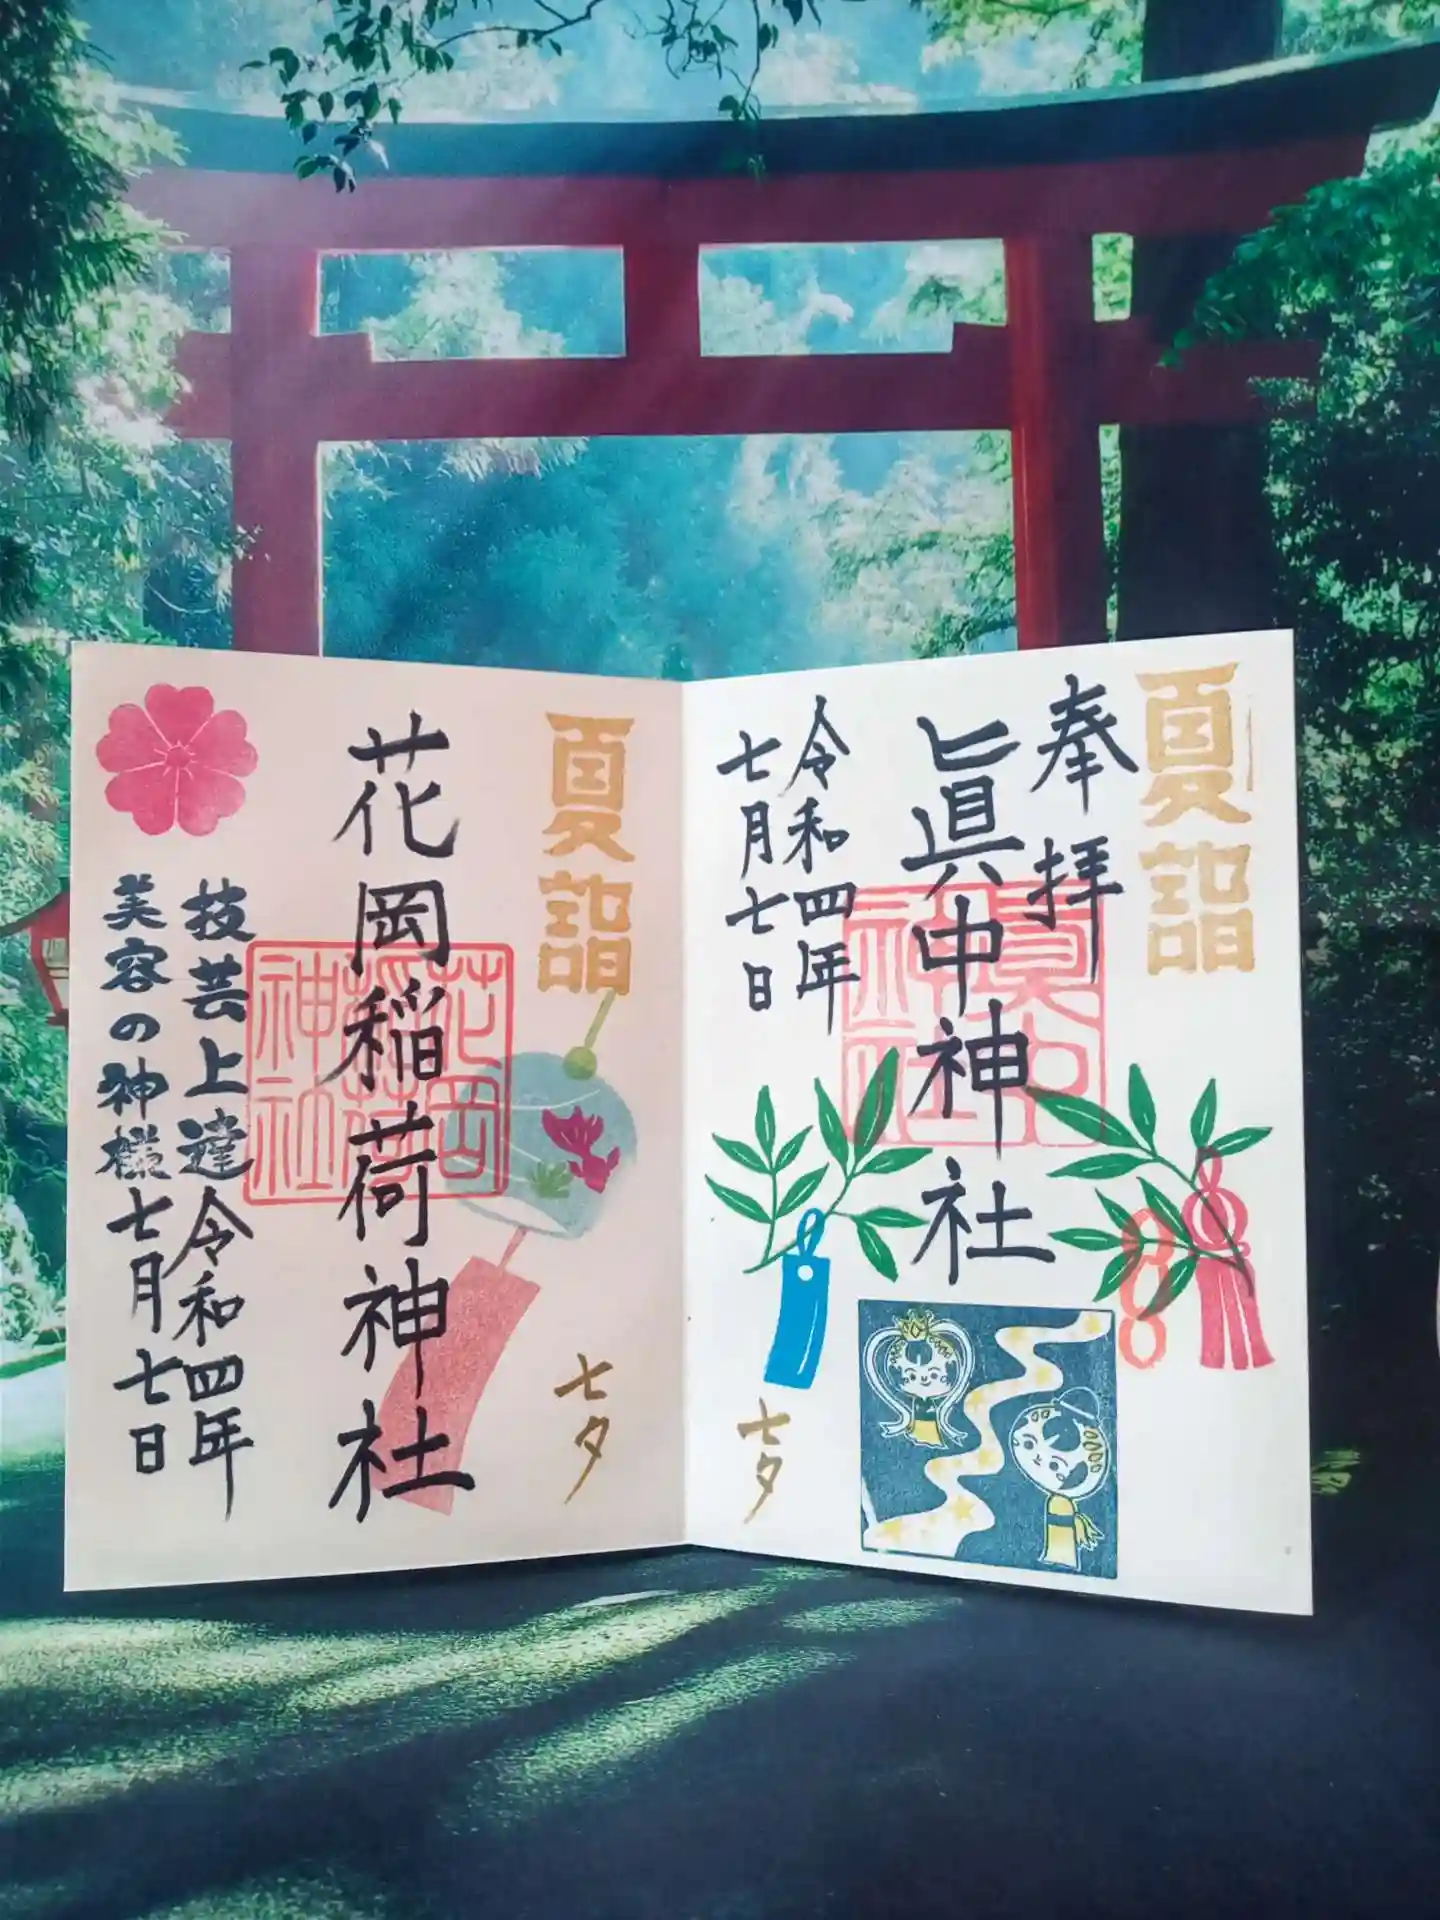 夏詣
奉拝
眞中神社
令和四年
七月七日
七夕
眞中
神社
夏詣
花岡稲荷神社
七夕
花岡
稲荷
神社
技芸上達
美容の神様
令和四年
七月七日